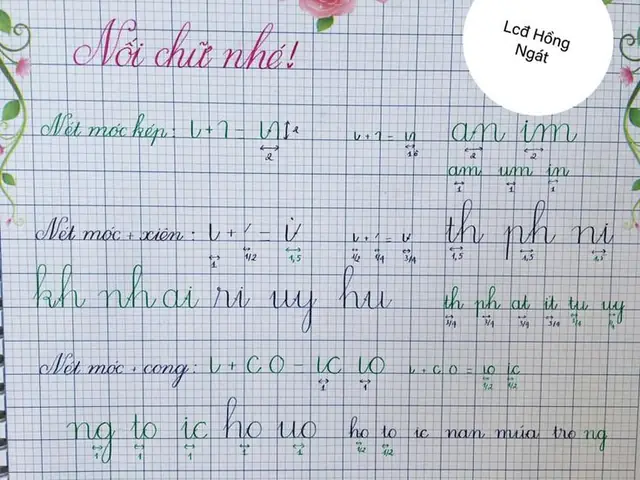 Lcđ Hồng
Ngát
Nối chữ nhé!
Nét móc kép: ɩ + ɿ = 2 2 1,5 an im 2 2
am um in 1 1 1
Nét móc + xiên: 1 1/2 1,5 1/2 1/4 3/4 th ph ni 1,5 1,5 1,5
kh nh ai ri uy hu th ph at it tu uy 3/4 3/4 3/4 3/4 3/4
Nét móc + cong: ɩ + c o = ɩc ɩo 1 1 ɩ + c o = ɩo ɩc 1/2 1/2
ng to ic ho uo 1 1 1 1 1 ho to ic nan múa trong 1/2 1/2